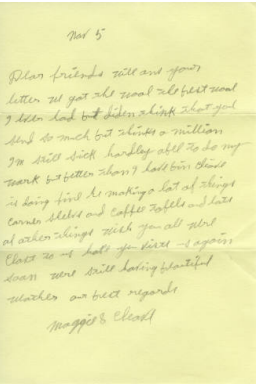 Nov 5
Dear friends will ans your
letter we got the wool the best wool
I ever had but diden think that you
send so much but thinks a million
I'm still sick hardley abel to do my
work but better than I have bin Cleave
is doing fine he making a lot of things
corner shelvs and coffee tabels and lots
of other things wish you all were
close to us hope you visit us again
soon were still having beautiful
weather our best regards
Maggie &